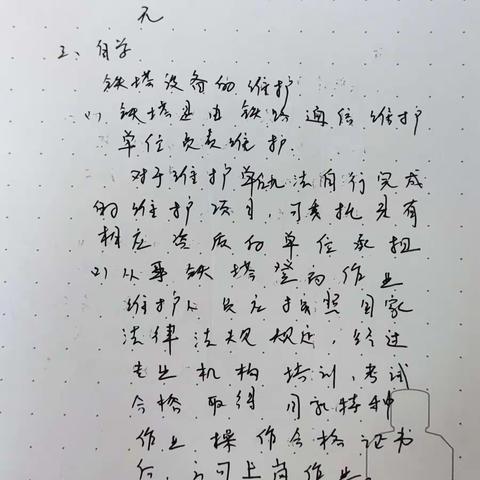 无
三、自学
铁塔设备的维护
(1) 铁塔是由铁路通信维护
单位负责维护.
对于维护单位无法自行完成
的维护项目,可委托具有
相应资质的单位承担
(2) 从事铁塔登高作业
维护人员应按照国家
法律法规规定,经过
专业机构培训,考试
合格取得国家特种
作业操作合格证书
后,方可上岗作业。